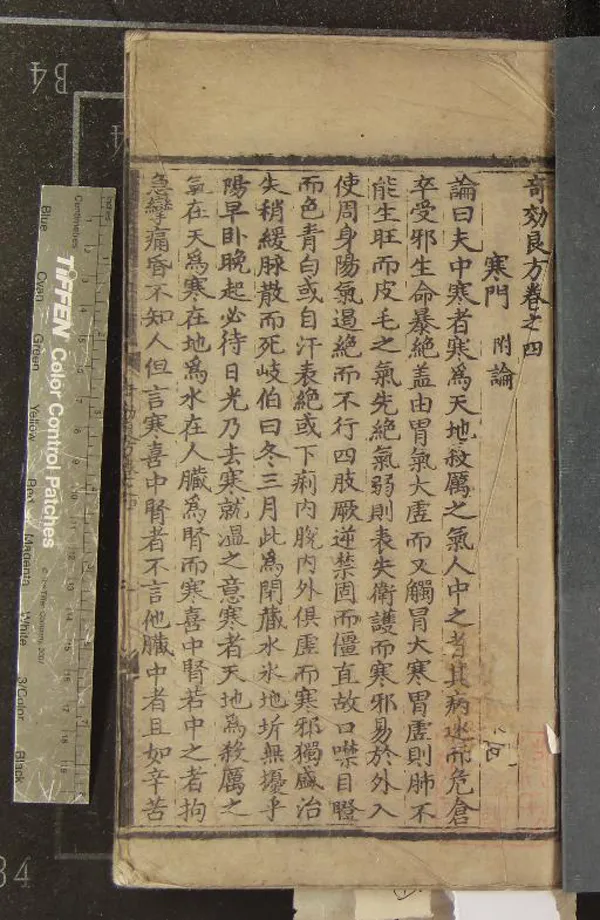 奇効良方卷之四
寒門 附論
論曰夫中寒者寒爲天地殺厲之氣人中之者其病速而危倉
卒受邪生命暴絶盖由胃氣大虚而又觸冒大寒胃虚則肺不
能生旺而皮毛之氣先絶氣弱則表失衛護而寒邪易於外入
使周身陽氣遏絶而不行四肢厥逆禁固而僵直故口噤目瞪
而色青白或自汗表絶或下痢内脫内外俱虚而寒邪獨盛治
失稍緩脉散而死岐伯曰冬三月此爲閉藏水氷地坼無擾乎
陽早卧晚起必待日光乃去寒就温之意寒者天地爲殺厲之
氣在天爲寒在地爲水在人臓爲腎而寒喜中腎若中之者拘
急攣痛昏不知人但言寒喜中腎者不言他臓中者且如辛苦
Centimetres
TIFFEN Color Control Patches
© The Tiffen Company, 2007
Blue
Cyan
Green
Yellow
Red
Magenta
White
3/Color
Black
B4
B4